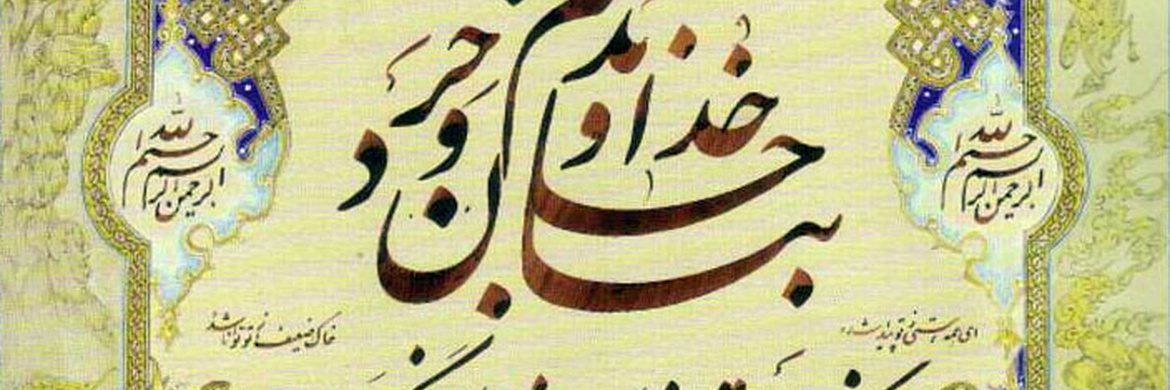 بنام خداوند جان و خرد
بسم الله الرحمن الرحیم
بسم الله الرحمن الرحیم
ای همه هستی ز تو پیدا شده
خاک ضعیف از تو توانا شده